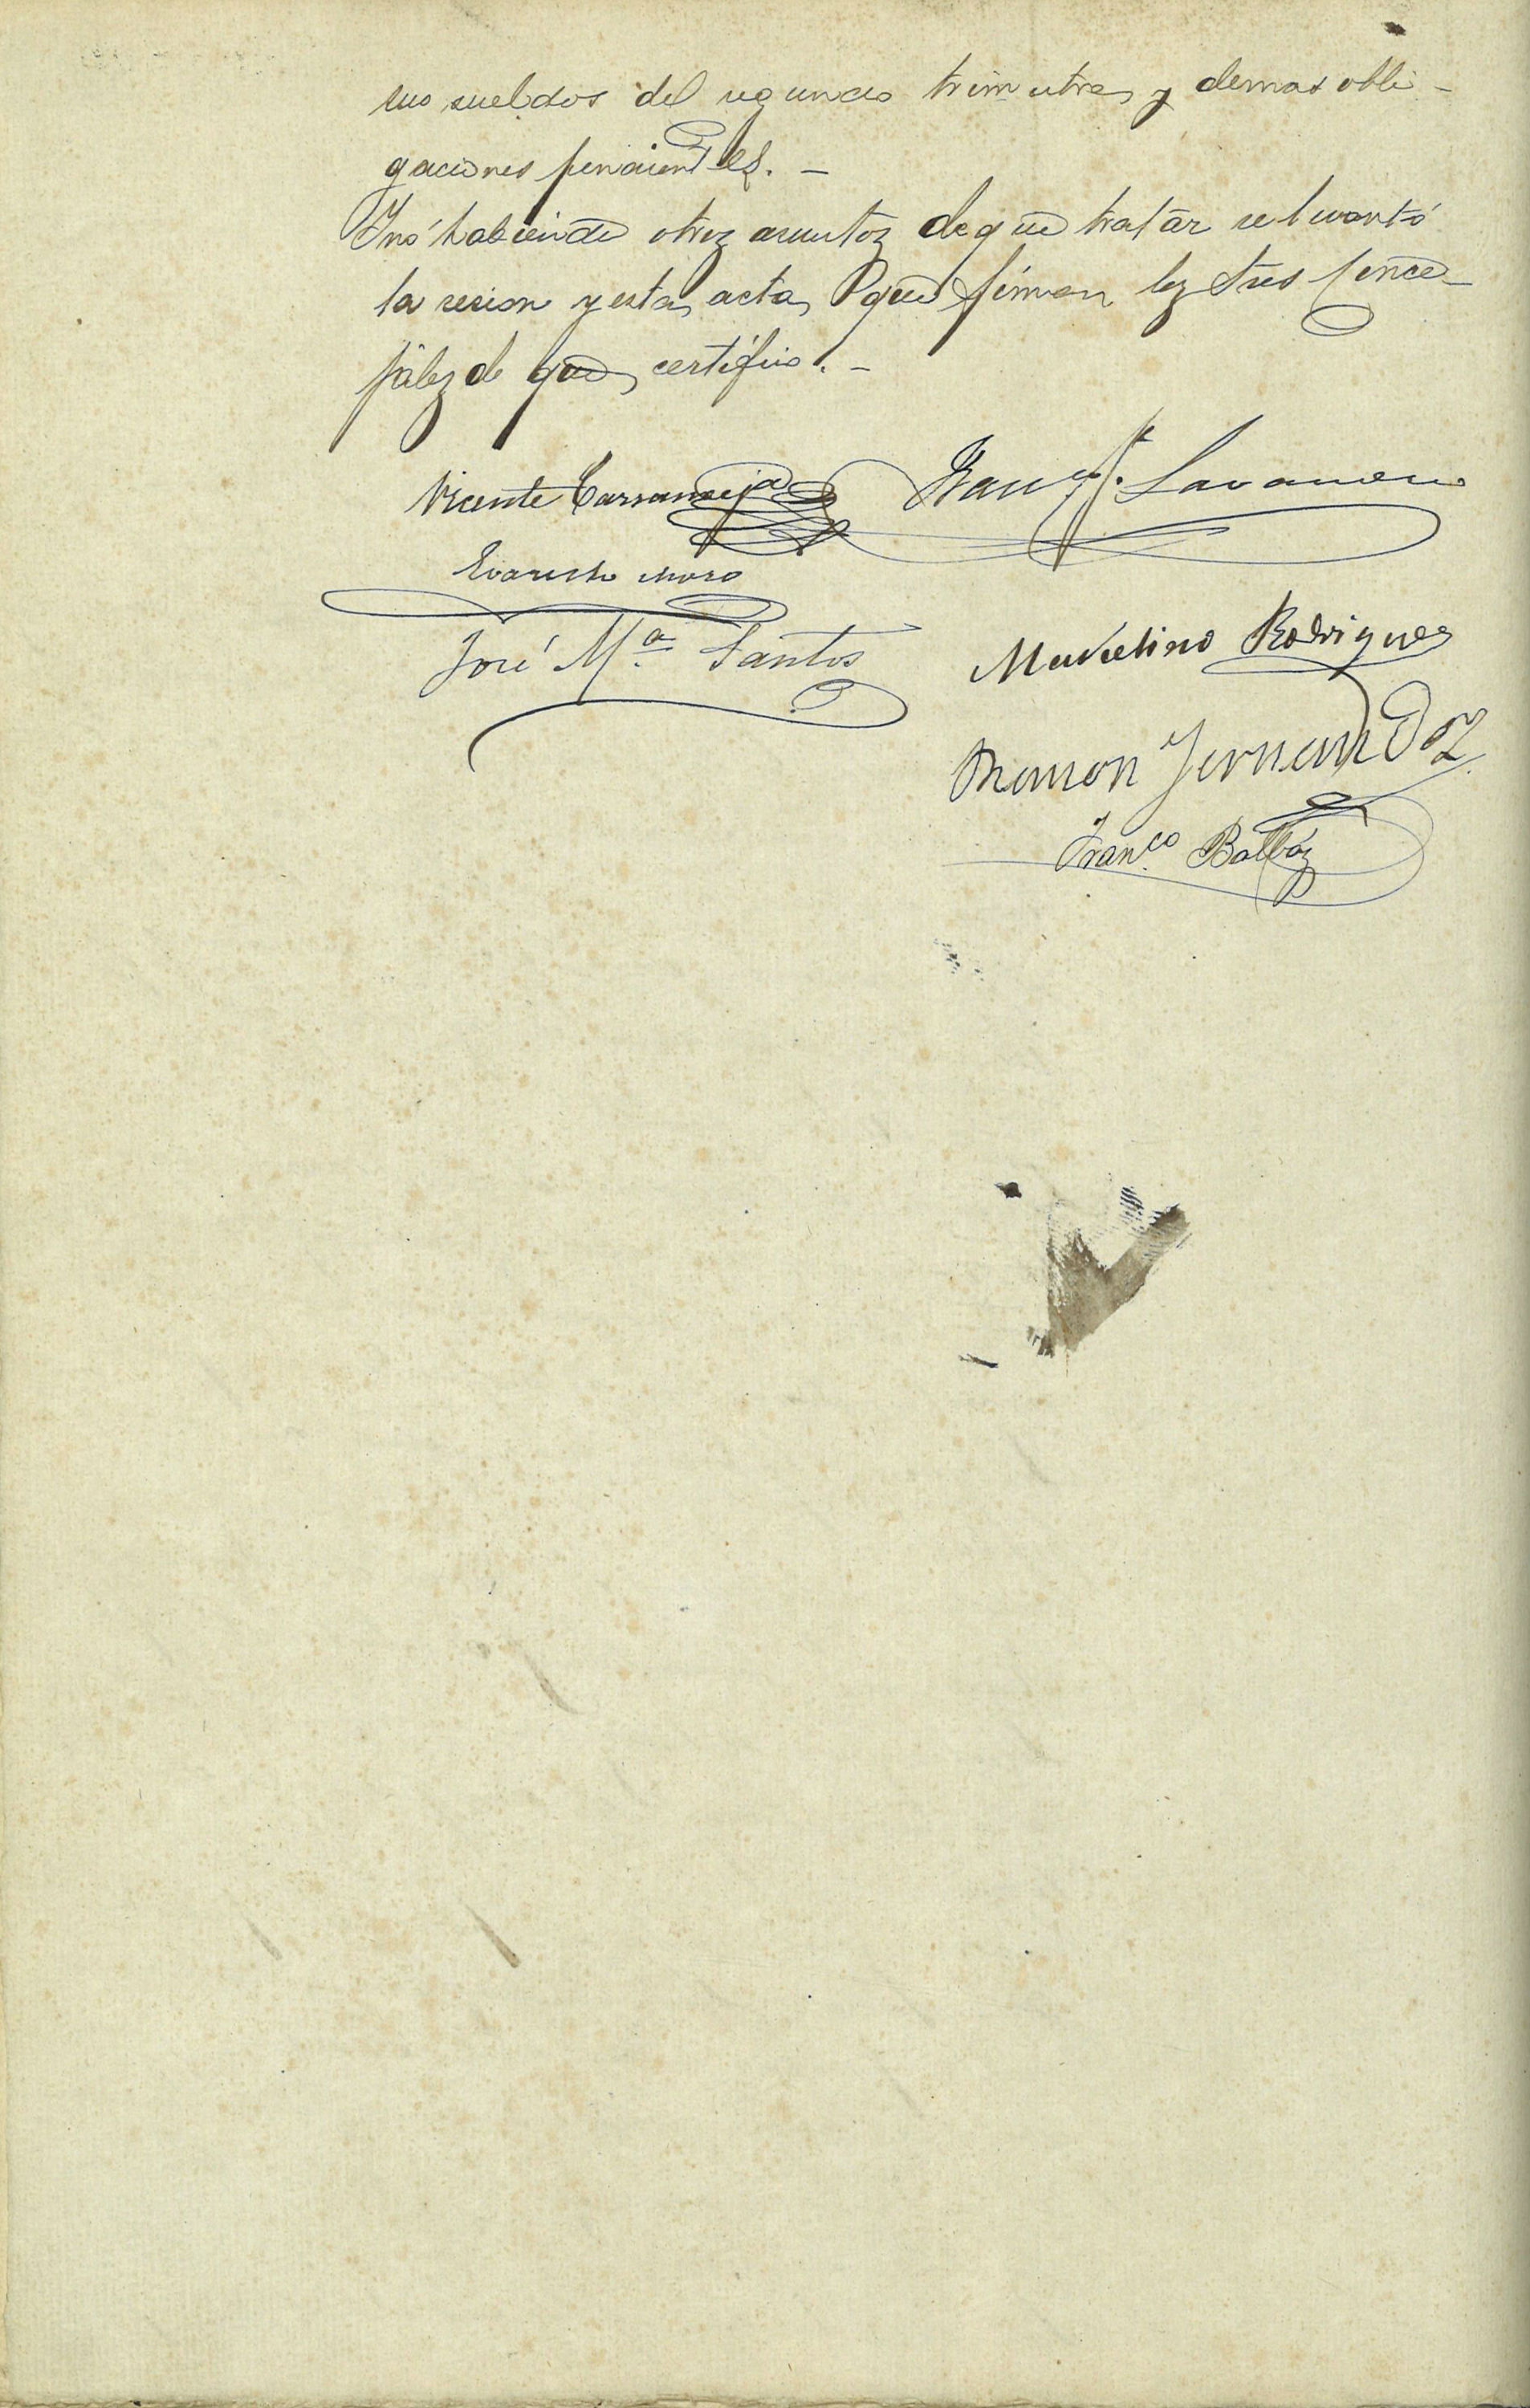 sus sueldos del segundo trimestre y demas obli-
gaciones pendientes. —
Y nó habiendo otroz asuntoz de que tratar se levantó
la sesion y esta acta que firman loz Sres Conce-
jalez de que certifico. —
Vicente Carraceja Franco
Evaristo Moro
José Mª Santos Marcelino Rodriguez
Ramon Fernandez
Franco Balbóz